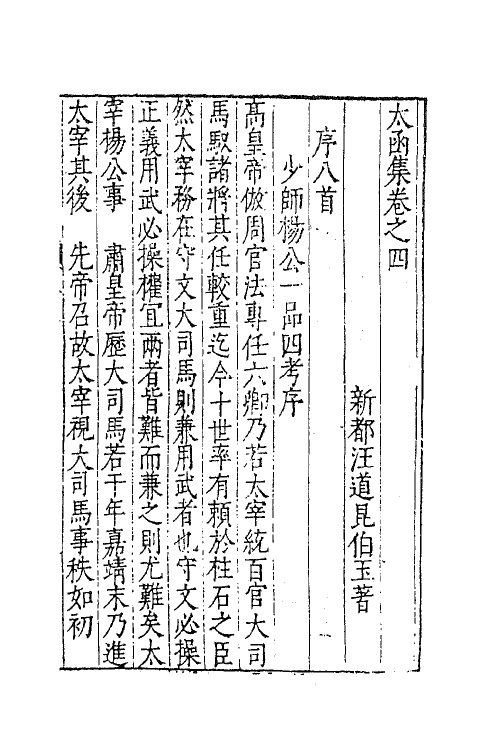 太函集卷之四
新都汪道昆伯玉著
序八首
少師楊公一品四考序
高皇帝倣周官法專任六卿乃若太宰統百官大司
馬馭諸將其任較重迄今十世率有賴於柱石之臣
然太宰務在守文大司馬則兼用武者也守文必操
正義用武必操權宜兩者皆難而兼之則尤難矣太
宰楊公事　肅皇帝歷大司馬若干年嘉靖末乃進
太宰其後　先帝召故太宰視大司馬事秩如初